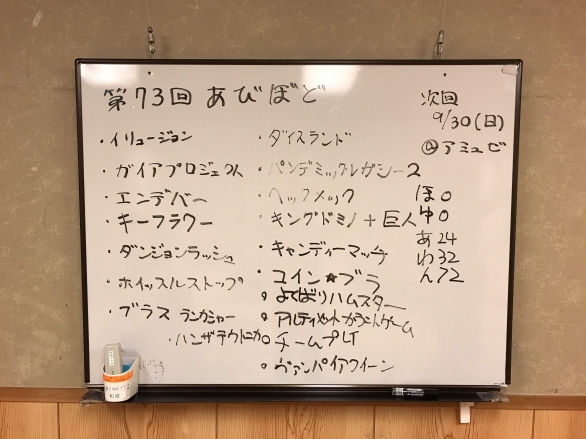 第73回 あびぼど
・イリュージョン
・ガイアプロジェクト
・エンデバー
・キーフラワー
・ダンジョンラッシュ
・ホイッスルストップ
・ブラス ランカシャー
・ハンザテウトニカ
・ダイスランド
・パンデミックレガシー2
・ヘックメック
・キングドミノ+巨人
・キャンディーマッチ
・コイン☆ブラ
・よくばりハムスター
・アルティメットカラントゲーム
・チームPLT
・ヴァンパイアクイーン
次回
9/30(日)
@アミュゼ
ほ0
ゆ0
あ24
わ32
ん72